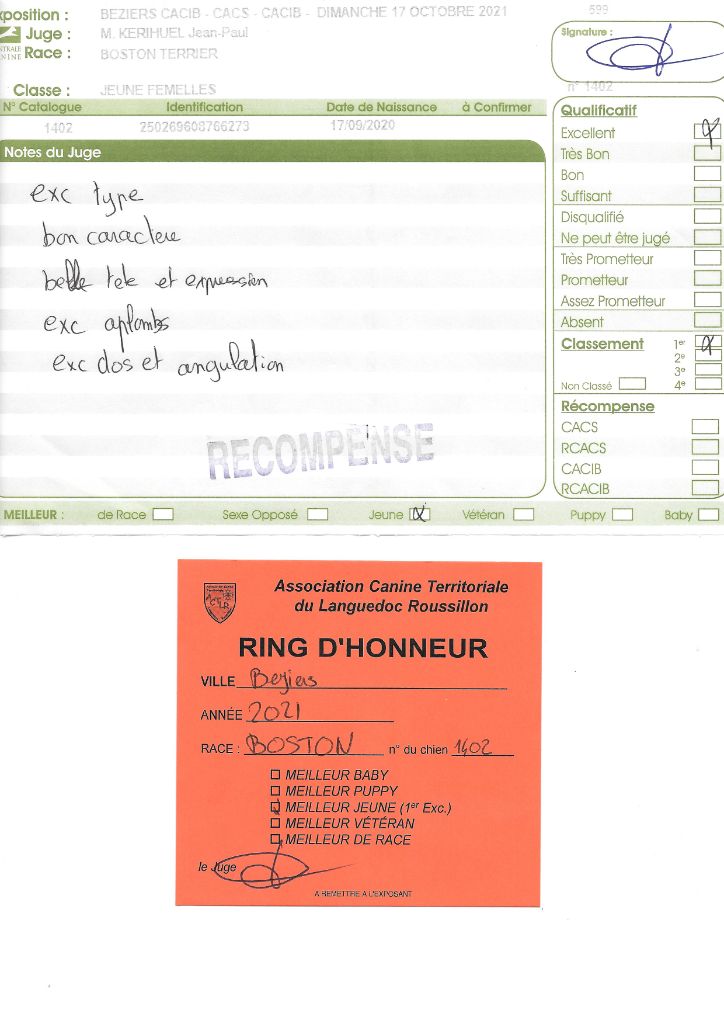 xposition : BEZIERS CACIB - CACS - CACIB - DIMANCHE 17 OCTOBRE 2021 599
Juge : M. KERIHUEL Jean-Paul
NTRALE
NINE Race : BOSTON TERRIER
Signature :
Classe : JEUNE FEMELLES n° 1402
N° Catalogue Identification Date de Naissance à Confirmer
1402 250269608766273 17/09/2020
Notes du Juge
exc type
bon caractere
belle tete et expression
exc aplombs
exc dos et angulation
RECOMPENSE
Qualificatif
Excellent
Très Bon
Bon
Suffisant
Disqualifié
Ne peut être jugé
Très Prometteur
Prometteur
Assez Prometteur
Absent
Classement 1er
2e
3e
Non Classé 4e
Récompense
CACS
RCACS
CACIB
RCACIB
MEILLEUR : de Race Sexe Opposé Jeune Vétéran Puppy Baby
Association Canine Territoriale
du Languedoc Roussillon
RING D'HONNEUR
VILLE Beziers
ANNÉE 2021
RACE : BOSTON n° du chien 1402
MEILLEUR BABY
MEILLEUR PUPPY
MEILLEUR JEUNE (1er Exc.)
MEILLEUR VÉTÉRAN
MEILLEUR DE RACE
le Juge
A REMETTRE A L'EXPOSANT